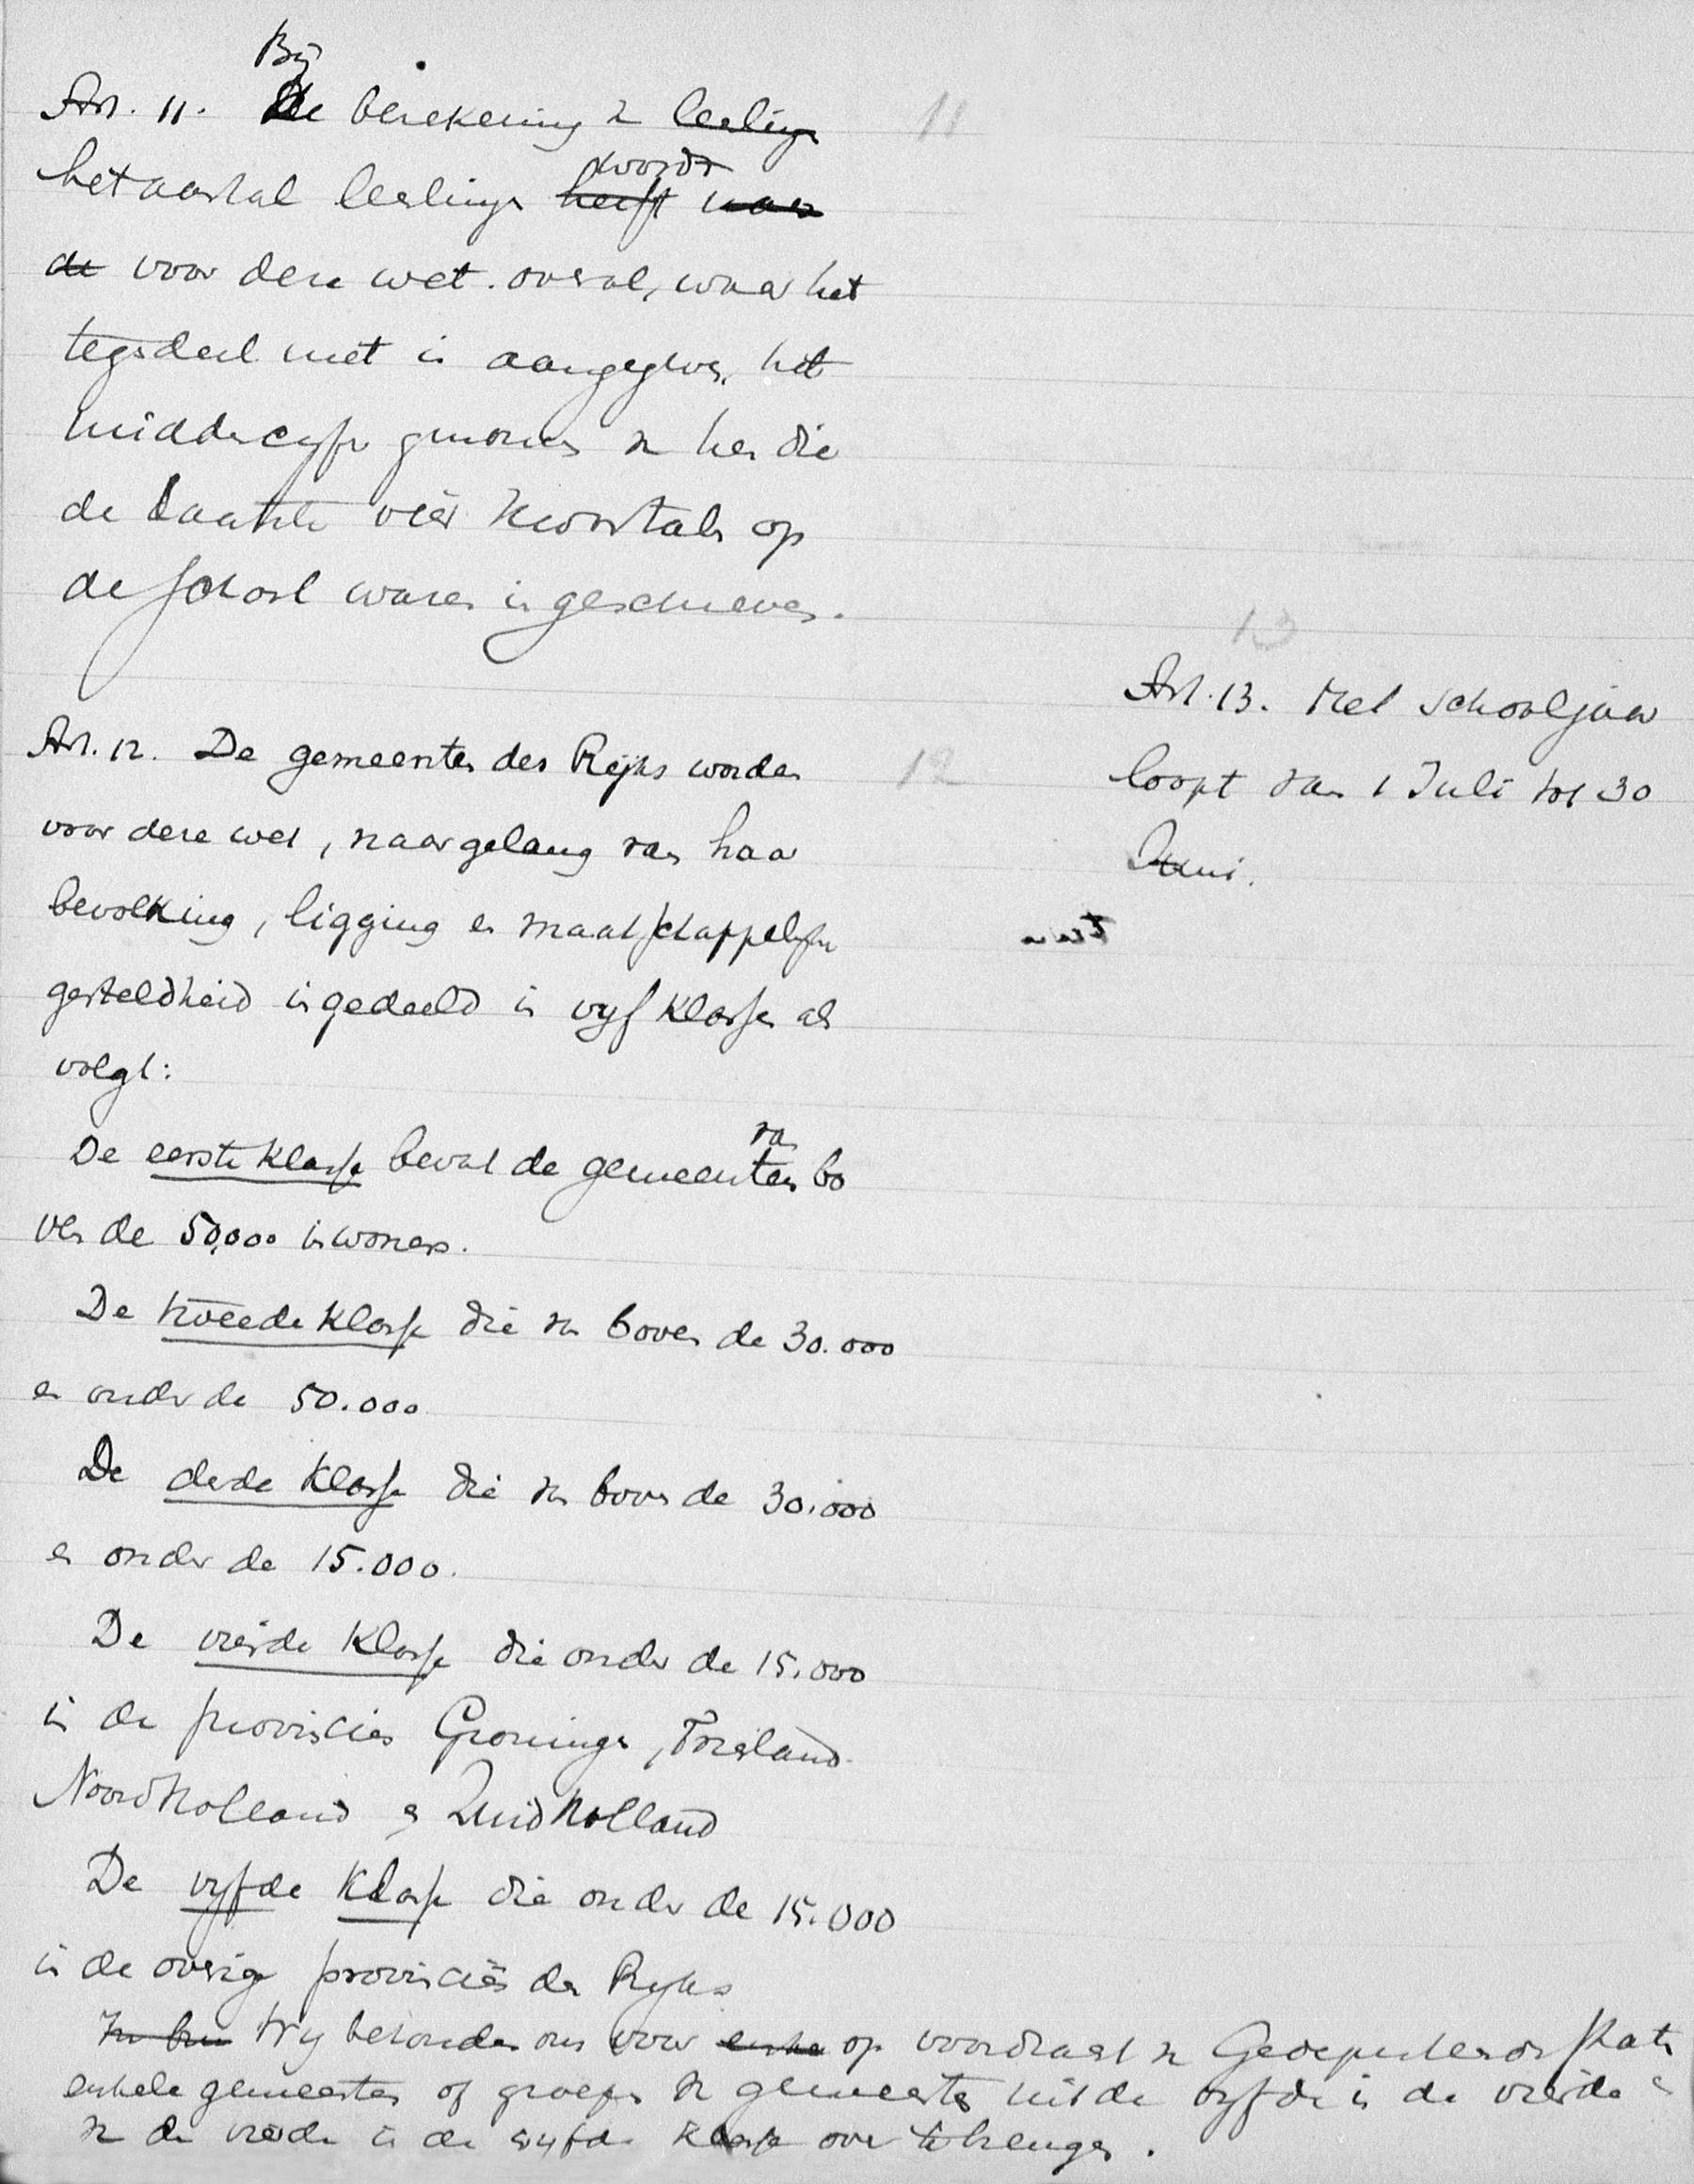 Bij
Art. 11. De berekening v leerlinge
het aantal leerlinge wordt
heeft
de voor deze wet. overal, waar het
tegendeel niet is aangegeven, het
middencijfer genomen v hen die
de laatste vier kwartalen op
de school waren ingeschreven.
Art. 12. De gemeenten des Rijks worden
voor deze wet, naar gelang van haar
bevolking, ligging en maatschappelijke
gesteldheid ingedeeld in vijf klassen als
volgt:
De eerste klasse bevat de gemeenten van bo
ven de 50.000 inwoners.
De tweede klasse die van boven de 30.000
en onder de 50.000
De derde klasse die van boven de 30.000
en onder de 15.000.
De vierde klasse die onder de 15.000
in de provincies Groningen, Friesland
Noordholland en Zuidholland
De vijfde klasse die onder de 15.000
in de overige provinciën des Rijks
Wij behouden ons voor op voordracht v Gedeputeerde Staten
enkele gemeenten of groepen v gemeenten uit de vijfde in de vierde en
v de vierde in de vijfde klasse over te brengen.
11
12
13
Art. 13. Het schooljaar
loopt van 1 Juli tot 30
Juni.